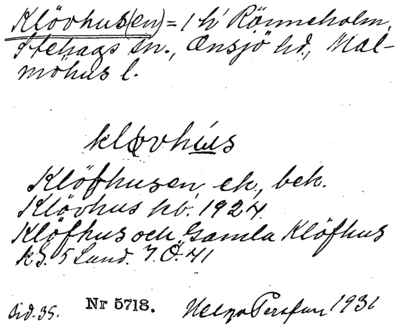 Klövhus(en) = 1 h Rönneholm,
Stehags sn., Onsjö hd., Mal-
möhus l.
klovhús
Klöfhusen, ek., bek.
Klövhus kb. 1924.
Klöfhus och Gamla Klöfhus
kS. 5 Lund. 7.Ö.41
Sid. 35. Nr 5718. Helge 1931